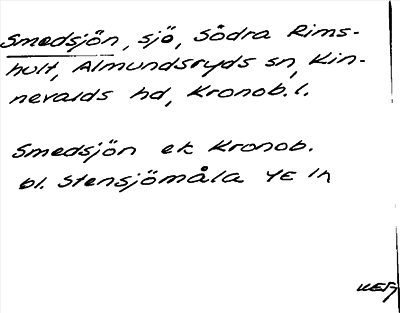 Smedsjön, sjö, Södra Rims-
hult, Almundsryds sn, Kin-
nevalds hd, Kronob. l.
Smedsjön ek Kronob.
bl. Stensjömåla 4E 1h